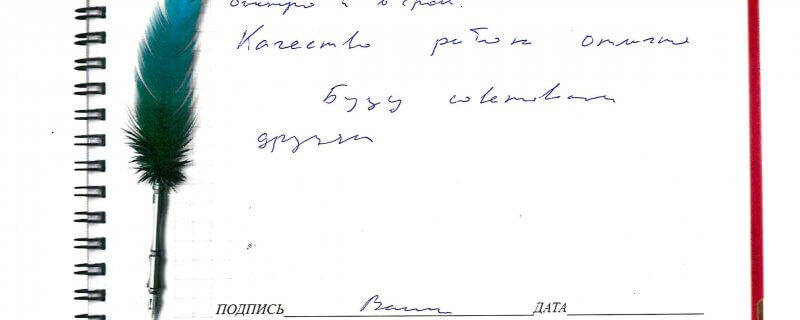 быстро и в срок.
Качество работы отличное
Буду советовать
друзьям
ПОДПИСЬ ДАТА